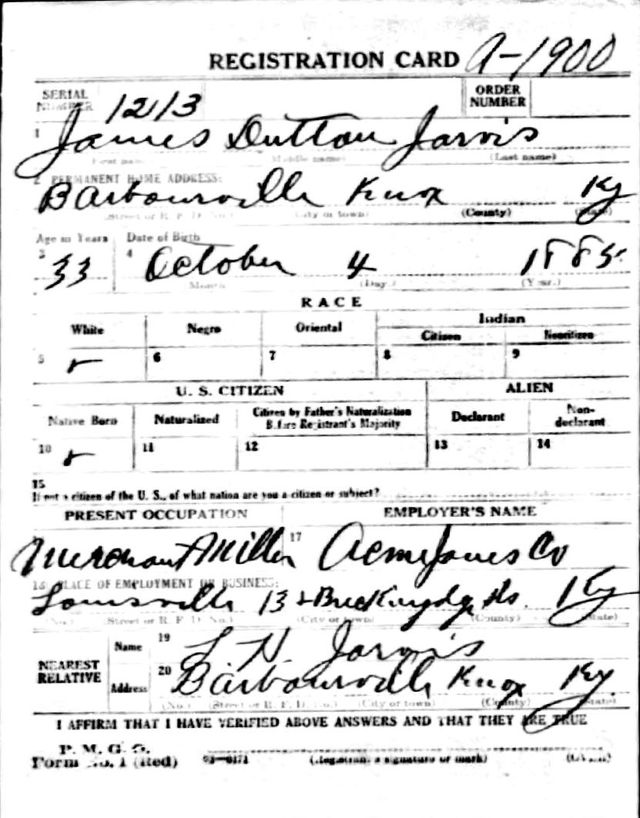 REGISTRATION CARD A-1900
SERIAL NUMBER 1213 ORDER NUMBER
1 James Dutton Jarvis
First name (Middle name) (Last name)
2 PERMANENT HOME ADDRESS:
Barbourville Knox Ky
(Street or R. F. D. No.) (City or town) (County) (State)
Age in Years Date of Birth
3 33 4 October 4 1885
Month (Day.) (Year.)
RACE
White Negro Oriental Indian
Citizen Noncitizen
5 6 7 8 9
U. S. CITIZEN ALIEN
Native Born Naturalized Citizen by Father's Naturalization Before Registrant's Majority Declarant Non-declarant
10 11 12 13 14
15
If not a citizen of the U. S., of what nation are you a citizen or subject?
PRESENT OCCUPATION EMPLOYER'S NAME
Merchant Miller 17 Acme Jones Co
18 PLACE OF EMPLOYMENT OR BUSINESS:
Louisville 13 + Breckinridge Sts. Ky
(No.) (Street or R. F. D. No.) (City or town) (County) (State)
NEAREST RELATIVE
Name 19 L N Jarvis
Address 20 Barbourville Knox Ky.
(No.) (Street or R. F. D. No.) (City or town) (County) (State)
I AFFIRM THAT I HAVE VERIFIED ABOVE ANSWERS AND THAT THEY ARE TRUE
P. M. G. O.
Form No. 1 (Red) 03-6171 (Registrant's signature or mark) (OVER)